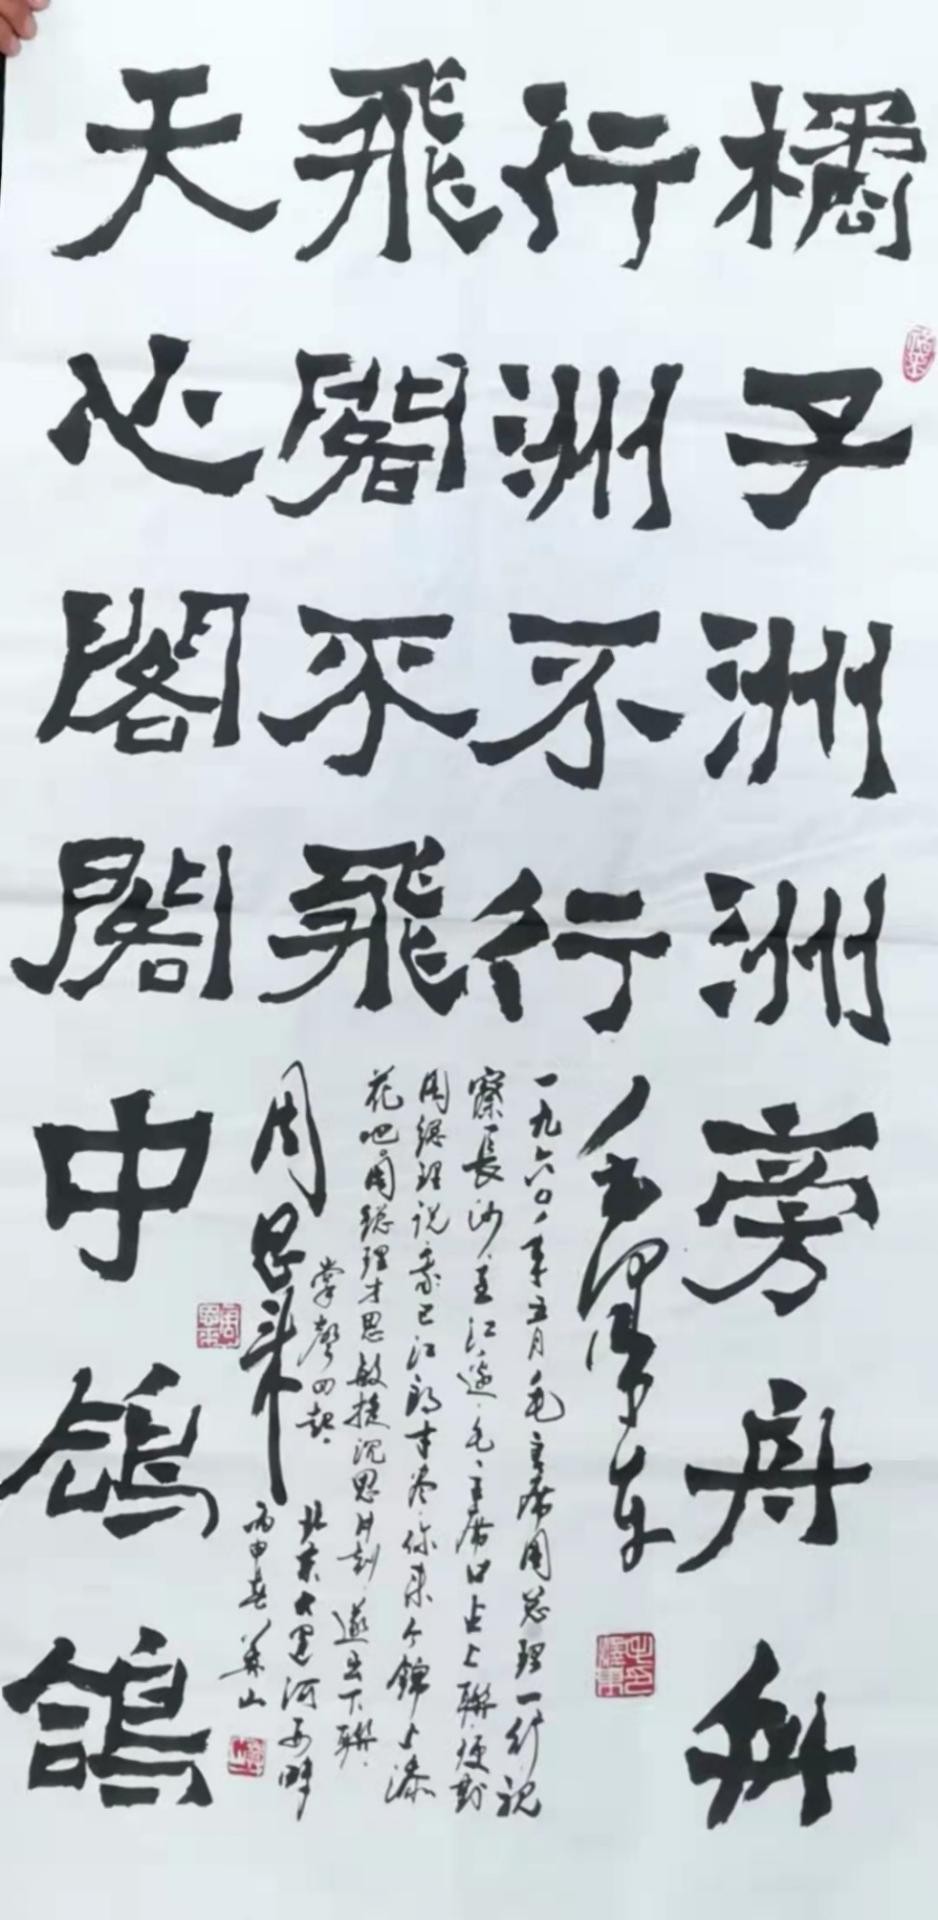 橘子洲洲旁舟舟
行洲不行
毛泽东
一九六〇年五月毛主席周总理一行视
察長沙至江边毛主席口占上聯便對
周總理说我已江郎才尽你来个錦上添
花吧周總理才思敏捷沉思片刻遂出下聯
掌声四起
天心閣閣中鴿鴿
飛閣不飛
周恩来
北京大运河西畔
丙申春